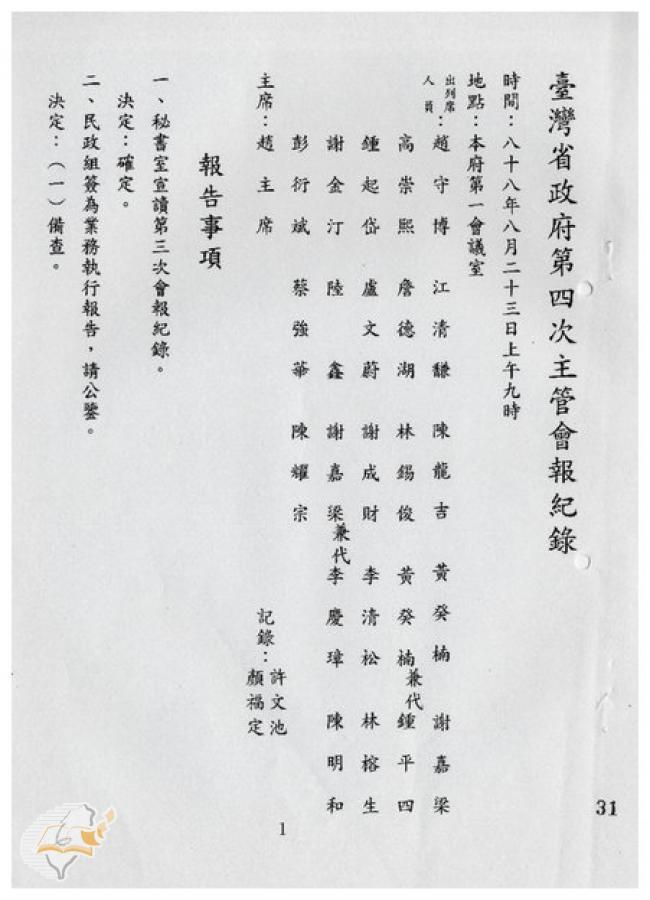 臺灣省政府第四次主管會報紀錄
時間：八十八年八月二十三日上午九時
地點：本府第一會議室
出列席人員：趙守博　江清馦　陳龍吉　黃癸楠　謝嘉梁
高崇熙　詹德湖　林錫俊　黃癸楠兼代　鍾平四
鍾起岱　盧文蔚　謝成財　李清松　林榕生
謝金汀　陸　鑫　謝嘉梁兼代　李慶璋　陳明和
彭衍斌　蔡強華　陳耀宗
主席：趙主席　記錄：許文池
顏福定
報告事項
一、秘書室宣讀第三次會報紀錄。
決定：確定。
二、民政組簽為業務執行報告，請公鑒。
決定：（一）備查。
1
31